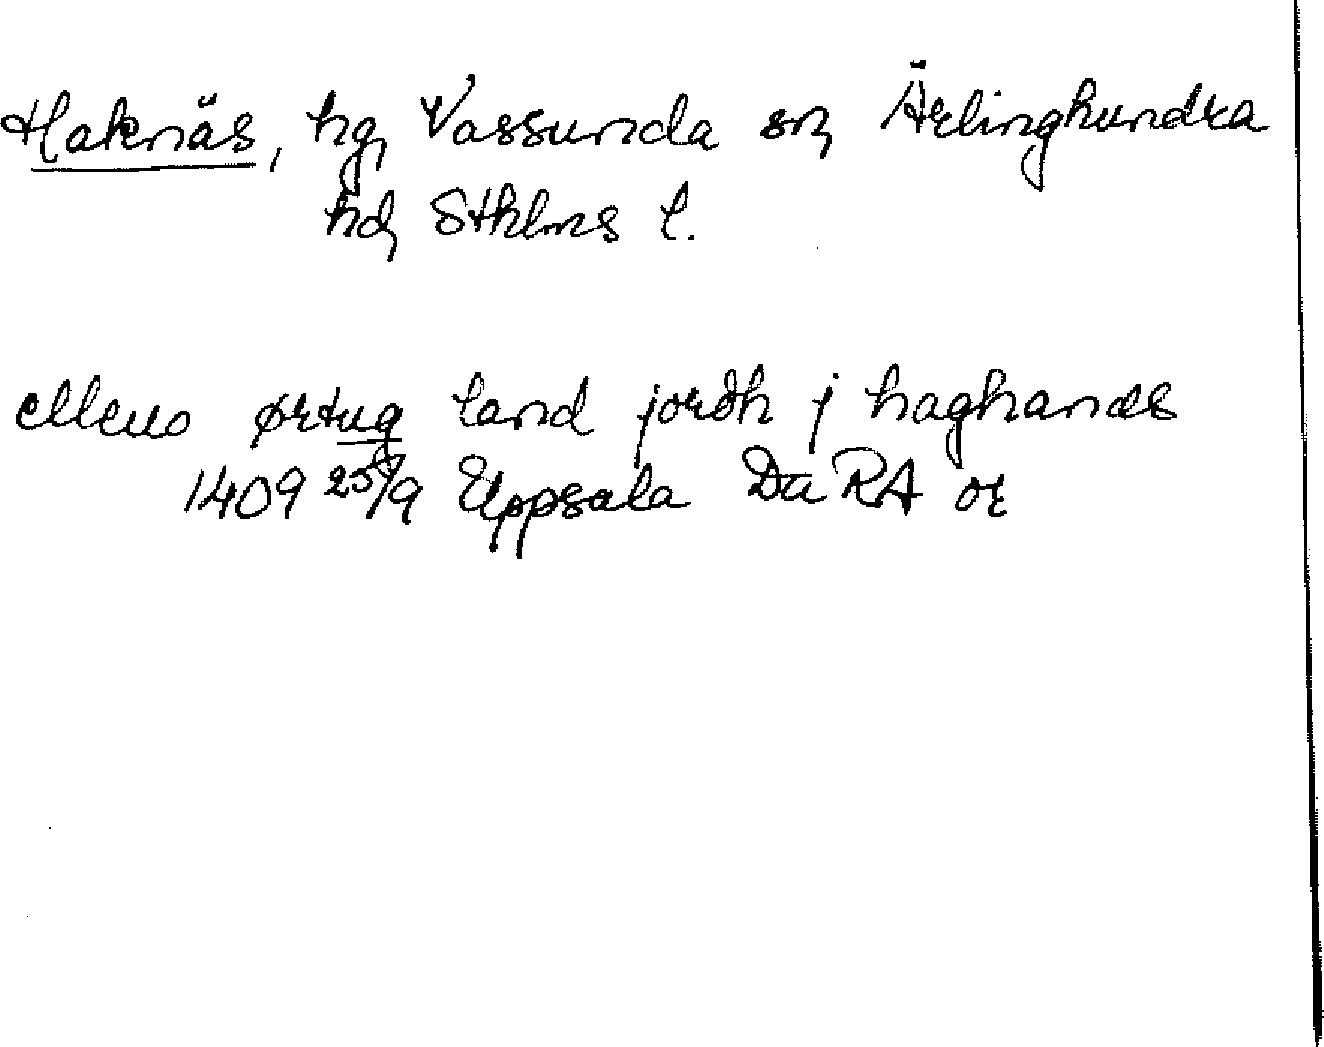 Haknäs, hg, Vassunda sn, Ärlinghundra
hd, Sthlms l.
elleuo ørtug land jordh j haghanæs
1409 25/9 Uppsala Da RA or